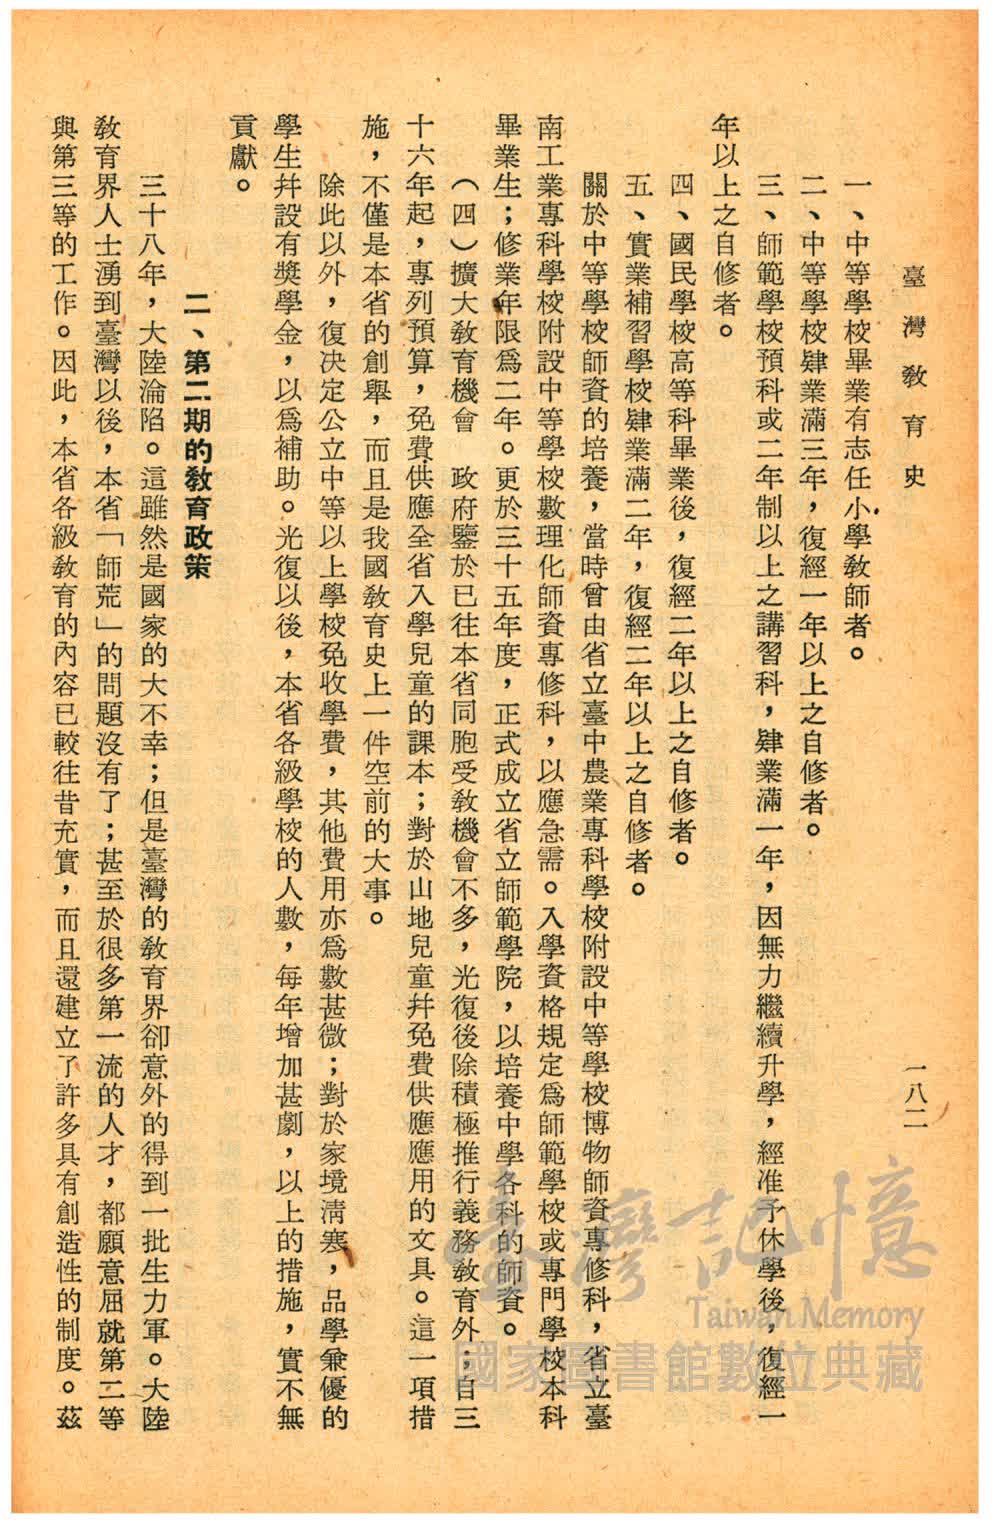 臺灣教育史
一八二
一、中等學校畢業有志任小學教師者。
二、中等學校肄業滿三年，復經一年以上之自修者。
三、師範學校預科或二年制以上之講習科，肄業滿一年，因無力繼續升學，經准予休學後，復經一
年以上之自修者。
四、國民學校高等科畢業後，復經二年以上之自修者。
五、實業補習學校肄業滿二年，復經二年以上之自修者。
關於中等學校師資的培養，當時曾由省立臺中農業專科學校附設中等學校博物師資專修科，省立臺
南工業專科學校附設中等學校數理化師資專修科，以應急需。入學資格規定爲師範學校或專門學校本科
畢業生；修業年限爲二年。更於三十五年度，正式成立省立師範學院，以培養中學各科的師資。
（四）擴大教育機會　政府鑒於已往本省同胞受教機會不多，光復後除積極推行義務教育外；自三
十六年起，專列預算，免費供應全省入學兒童的課本；對於山地兒童幷免費供應應用的文具。這一項措
施，不僅是本省的創舉，而且是我國教育史上一件空前的大事。
除此以外，復決定公立中等以上學校免收學費，其他費用亦爲數甚微；對於家境淸寒，品學兼優的
學生幷設有獎學金，以爲補助。光復以後，本省各級學校的人數，每年增加甚劇，以上的措施，實不無
貢獻。
二、第二期的教育政策
三十八年，大陸淪陷。這雖然是國家的大不幸；但是臺灣的教育界卻意外的得到一批生力軍。大陸
教育界人士湧到臺灣以後，本省「師荒」的問題沒有了；甚至於很多第一流的人才，都願意屈就第二等
與第三等的工作。因此，本省各級教育的內容已較往昔充實，而且還建立了許多具有創造性的制度。茲
臺灣記憶
Taiwan Memory
國家圖書館數位典藏